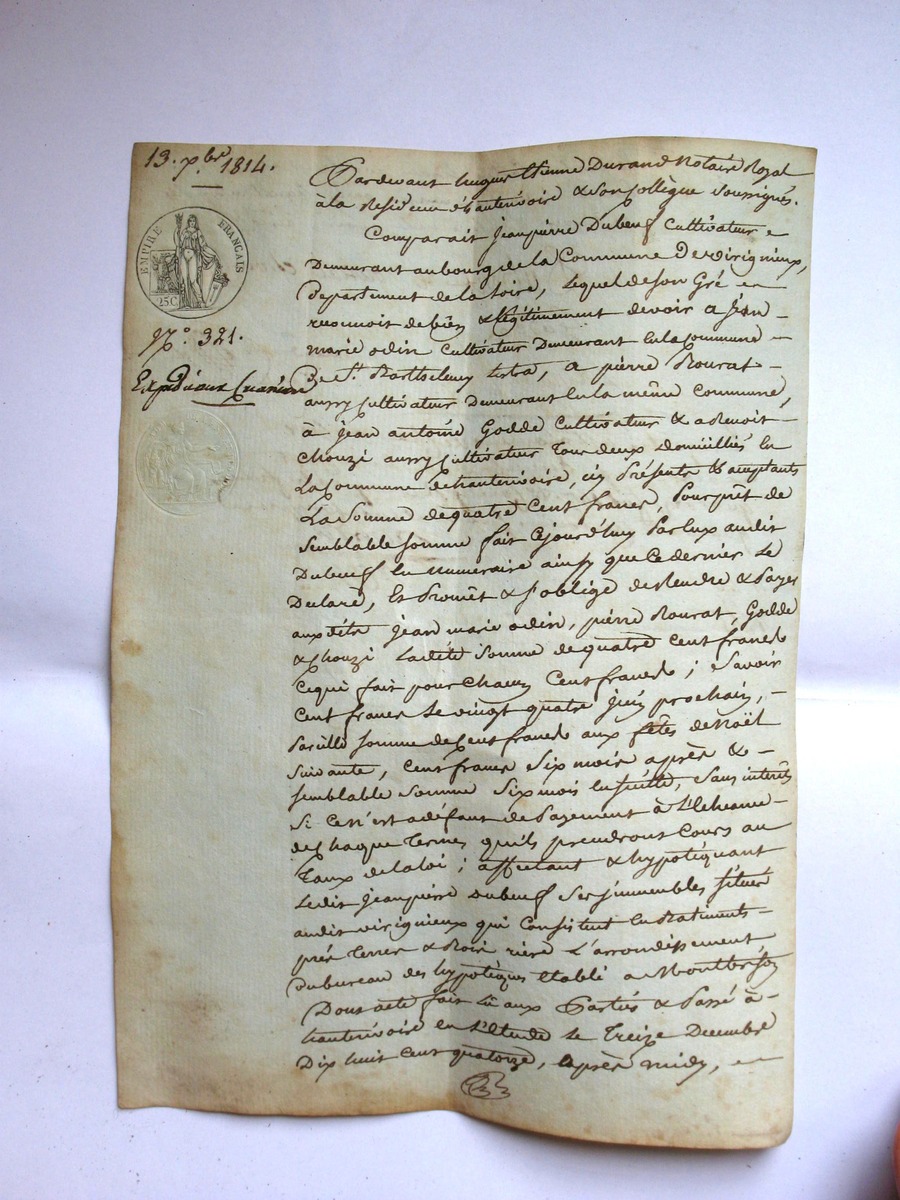 13. Xbre 1814.
EMPIRE FRANÇAIS
25C
N° 321.
Pardevant hugues Etienne Durand Notaire Royal
à la Residence d'hauterivoire & son Collègue soussignés.
Comparait Jeanpierre Dubeuf Cultivateur
Demeurant au bourg de la Commune De virignieux,
Departement de la Loire, Lequel de son Gré
reconnoit de bien & Légitimement devoir a Jean
marie odin Cultivateur Demeurant en la Commune
De St. Barthelemy Lestra, a pierre
aussy Cultivateur Demeurant en la même commune,
à Jean antoine Godde Cultivateur & a Benoit
Chouzi aussy Cultivateur Tous deux Domiciliés en
La Commune d'hauterivoire, icy Présents & acceptants
La Somme de quatre Cent francs, Pour prêt de
Semblable Somme fait Cejourd'huy Par Eux audit
Dubeuf En Numeraire ainsy que ce dernier Le
Declare, Et Promet & s'oblige de Rendre & Payer
auxdits Jean marie odin, pierre Godde
& Chouzi Ladite Somme de quatre Cent francs
Ce qui fait pour Chacun Cent francs ; Savoir
Cent francs Le vingt quatre Juin prochain,
Pareille Somme de Cent francs aux fêtes de Noël
Suivante, Cent francs Six mois après &
Semblable Somme Six mois Ensuitte, Sans interêts
Si ce n'est a défaut de Payement à L'Echeance
de Chaque Termes qu'ils prendront Cours au
Taux de la loi ; affectant & hypotéquant
Ledit Jeanpierre Dubeuf Ses immeubles Situés
audit virignieux qui Consistent En Batiments
prés Terres & Bois riere L'arrondissement
Du bureau des hypotèques Etabli a Montbrison
Dont acte fait Lu aux Parties & Passé à
hauterivoire En L'Etude Le Treize Decembre
Dix huit Cent quatorze, après midy,